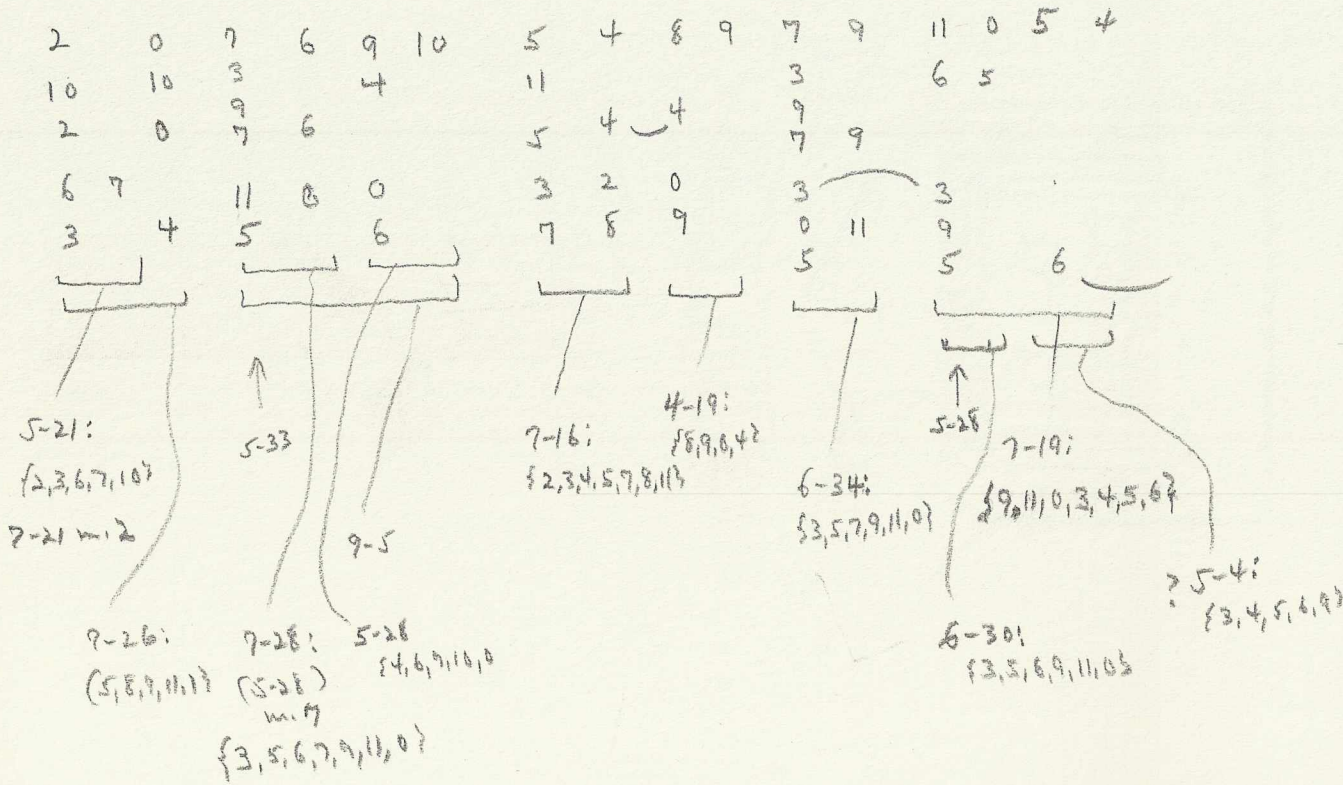 2 0 7 6 9 10 5 4 8 9 7 9 11 0 5 4
10 10 3 4 11 3 6 5
9 4 4 9
2 0 7 6 5 7 9
6 7 11 0 0 3 2 0 3 3
3 4 5 6 7 8 9 0 11 9
5 5 6
5-21:
{2,3,6,7,10}
7-21 m.2
5-33
9-5
7-16:
{2,3,4,5,7,8,11}
4-19:
{8,9,0,4}
6-34:
{3,5,7,9,11,0}
5-28
7-19:
{9,11,0,3,4,5,6}
7-26:
7-28:
(5-28)
m.7
{3,5,6,7,9,11,0}
5-28
{4,6,9,10,0
6-30:
{3,5,6,9,11,0}
? 5-4:
{3,4,5,6,9}